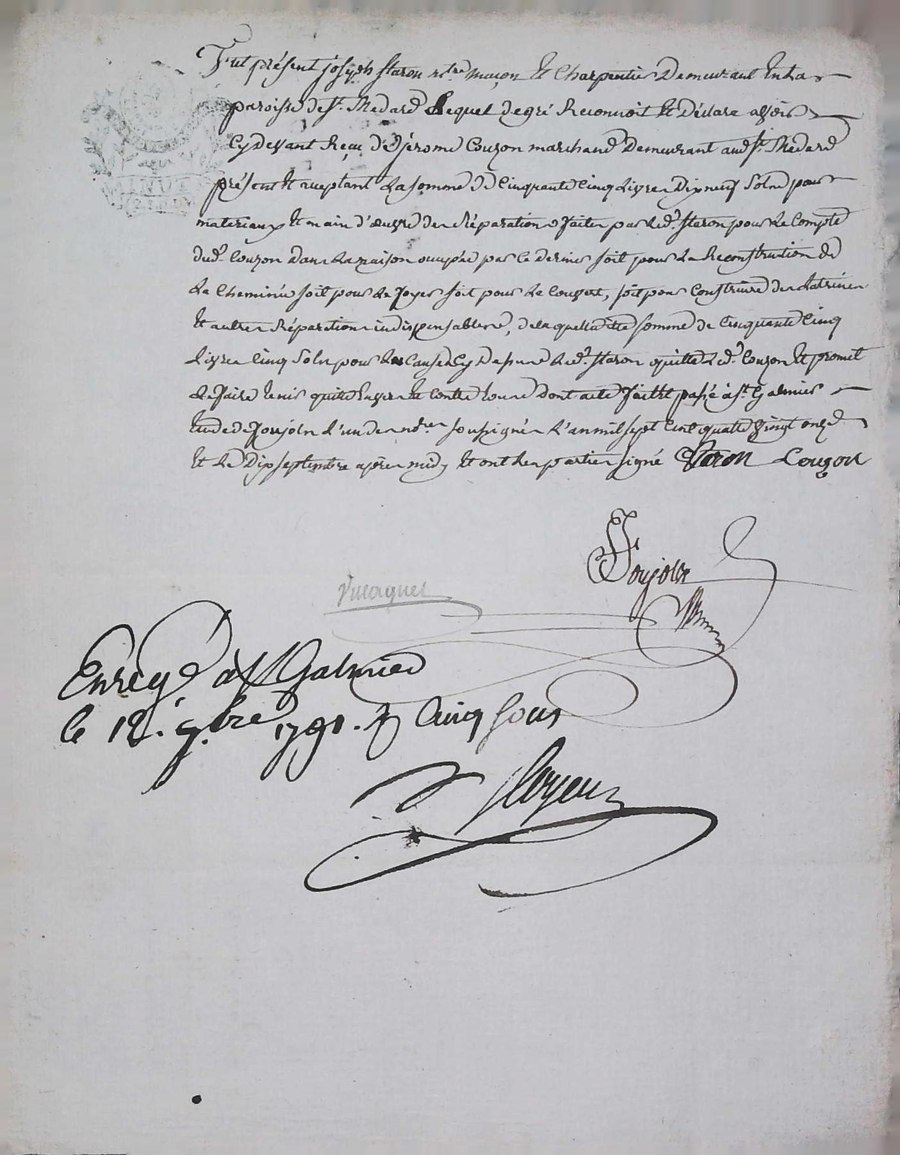 Fut présent joseph Staron m.tre maçon Et Charpentier Demeurant En La
paroisse de St. Medard Lequel de gré Reconnoit Et Déclare avoir
Cy devant Reçu de Sr jérome Couzon marchand Demeurant aud. St. Medard
présent Et aceptant La somme de Cinquante Cinq Livres Dix neuf Sols pour
materiaux Et main d'œuvre des Réparations faites par Led. Staron pour Le Compte
dud. Couzon dans La maison occupée par ce dernier soit pour La Reconstruction de
La Cheminée soit pour Le foyer soit pour Le Couvert, soit pour Construire des Latrines
Et autres Réparations indispensables, de laquelle ditte somme de Cinquante Cinq
Livres Cinq Sols pour Les Causes Cy Dessus Led. Staron quitte Led. Couzon Et promet
Le faire tenir quitte Envers Et Contre tous dont acte fait Et passé à St. Galmier
Etude de Poujols L'un des nores soussignés L'an mil sept Cent quatre vingt onze
Et Le Dix septembre après midy Et ont Les parties signé Staron Couzon
Poujols
Enregé à St Galmier
le 12. 7.bre 1791. R Cinq sous